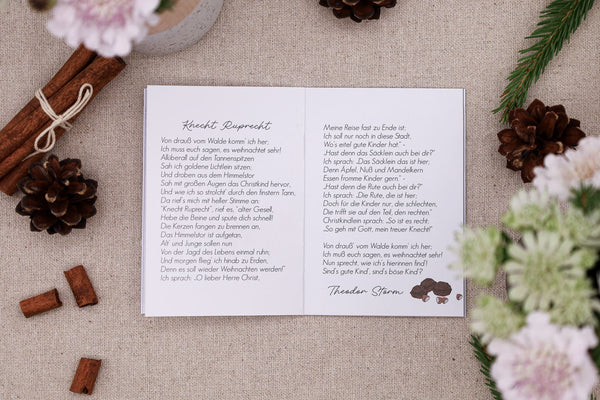 Knecht Ruprecht
Von drauß' vom Walde komm' ich her;
Ich muss euch sagen, es weihnachtet sehr!
Allüberall auf den Tannenspitzen
Sah ich goldene Lichtlein sitzen;
Und droben aus dem Himmelstor
Sah mit großen Augen das Christkind hervor,
Und wie ich so strolcht' durch den finstern Tann,
Da rief's mich mit heller Stimme an:
"Knecht Ruprecht", rief es, "alter Gesell,
Hebe die Beine und spute dich schnell!
Die Kerzen fangen zu brennen an,
Das Himmelstor ist aufgetan,
Alt' und Junge sollen nun
Von der Jagd des Lebens einmal ruhn;
Und morgen flieg' ich hinab zu Erden,
Denn es soll wieder Weihnachten werden!"
Ich sprach: „O lieber Herre Christ,
Meine Reise fast zu Ende ist;
Ich soll nur noch in diese Stadt,
Wo's eitel gute Kinder hat." -
„Hast denn das Säcklein auch bei dir?"
Ich sprach: „Das Säcklein das ist hier;
Denn Äpfel, Nuß und Mandelkern
Essen fromme Kinder gern." -
„Hast denn die Rute auch bei dir?"
Ich sprach: „Die Rute, die ist hier;
Doch für die Kinder nur, die schlechten,
Die trifft sie auf den Teil, den rechten."
Christkindlein sprach: „So ist es recht;
So geh mit Gott, mein treuer Knecht!"
Von drauß' vom Walde komm' ich her;
Ich muß euch sagen, es weihnachtet sehr!
Nun sprecht, wie ich's hierinnen find'!
Sind's gute Kind', sind's böse Kind'?
Theodor Storm